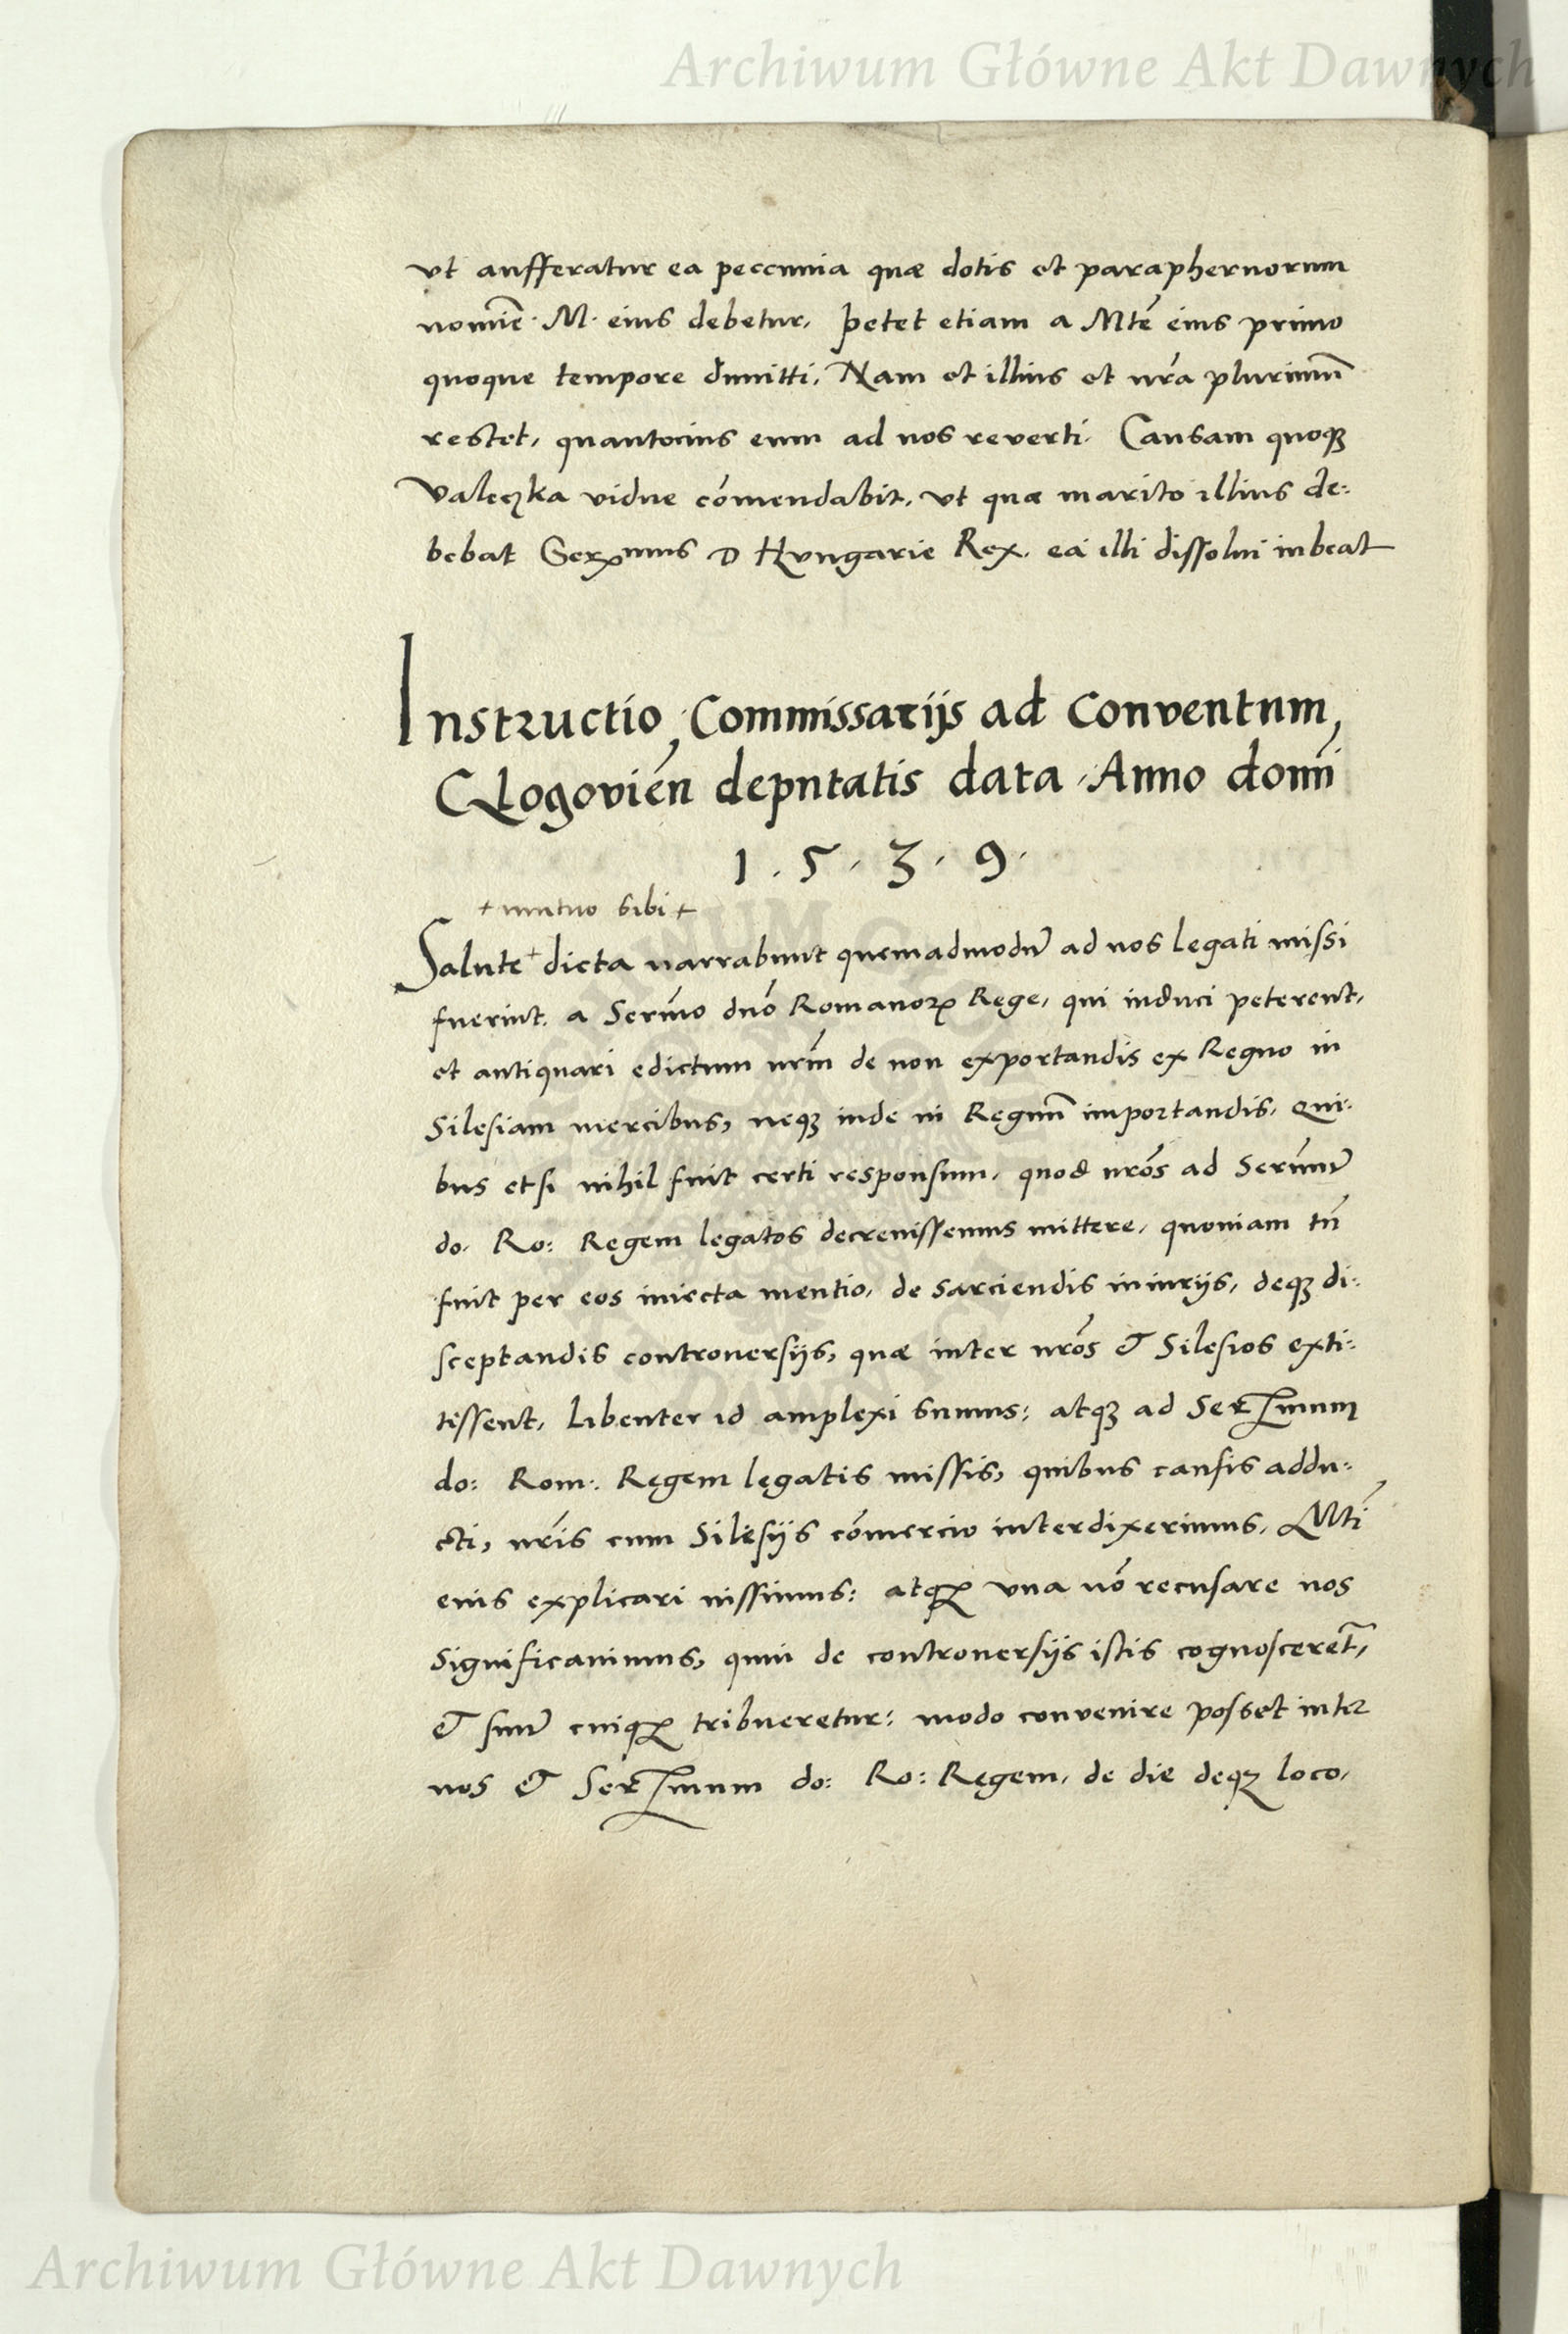 Archiwum Główne Akt Dawnych
vt aufferatur ea peccunia quæ dotis et paraphernorum
nomīe · M · eius debetur, petet etiam a Mtē eius primo
quoque tempore dimitti, Nam et illius et nrā plurimū
restet, quantocius eum ad nos reverti. Causam quoqȝ
Valeczka vidue cōmendabit, vt quæ marito illius de:
bebat Serᵐᵘˢ D Hungarie Rex, ea illi dissolui iubeat
Instructio, Commissarijs ad Conventum,
Glogoviēn deputatis data · Anno domī
1 · 5 · 3 · 9 ·
+ mutuo sibi +
Salute + dicta narrabunt quemadmodū ad nos legati missi
fuerint, a Serm̄o dnō Romanorꝝ Rege, qui induci peterent,
et antiquari edictum nrm̄ de non exportandis ex Regno in
Silesiam mercibus, neqȝ inde in Regnū importandis, Qui:
bus etsi nihil fuit certi responsum, quod nrōs ad Serm̄ū
do. Ro: Regem legatos decreuissemus mittere, quoniam tn̄
fuit per eos iniecta mentio, de sarciendis iniurijs, deqȝ di:
sceptandis controuersijs, quæ inter nrōs & Silesios exti:
tissent, Libenter id amplexi sumus: atqȝ ad Serᵐum
do: Rom: Regem legatis missis, quibus causis addu:
cti, nrīs cum Silesijs cōmercio interdixerimus, Mtī
eius explicari iussimus: atqꝫ vna nō recusare nos
significauimus, quin de controuersijs istis cognoscerēt,
& suū cuiqꝫ tribueretur: modo convenire posset inter
nos & Serᵐum do: Ro: Regem, de die deqȝ loco,
Archiwum Główne Akt Dawnych